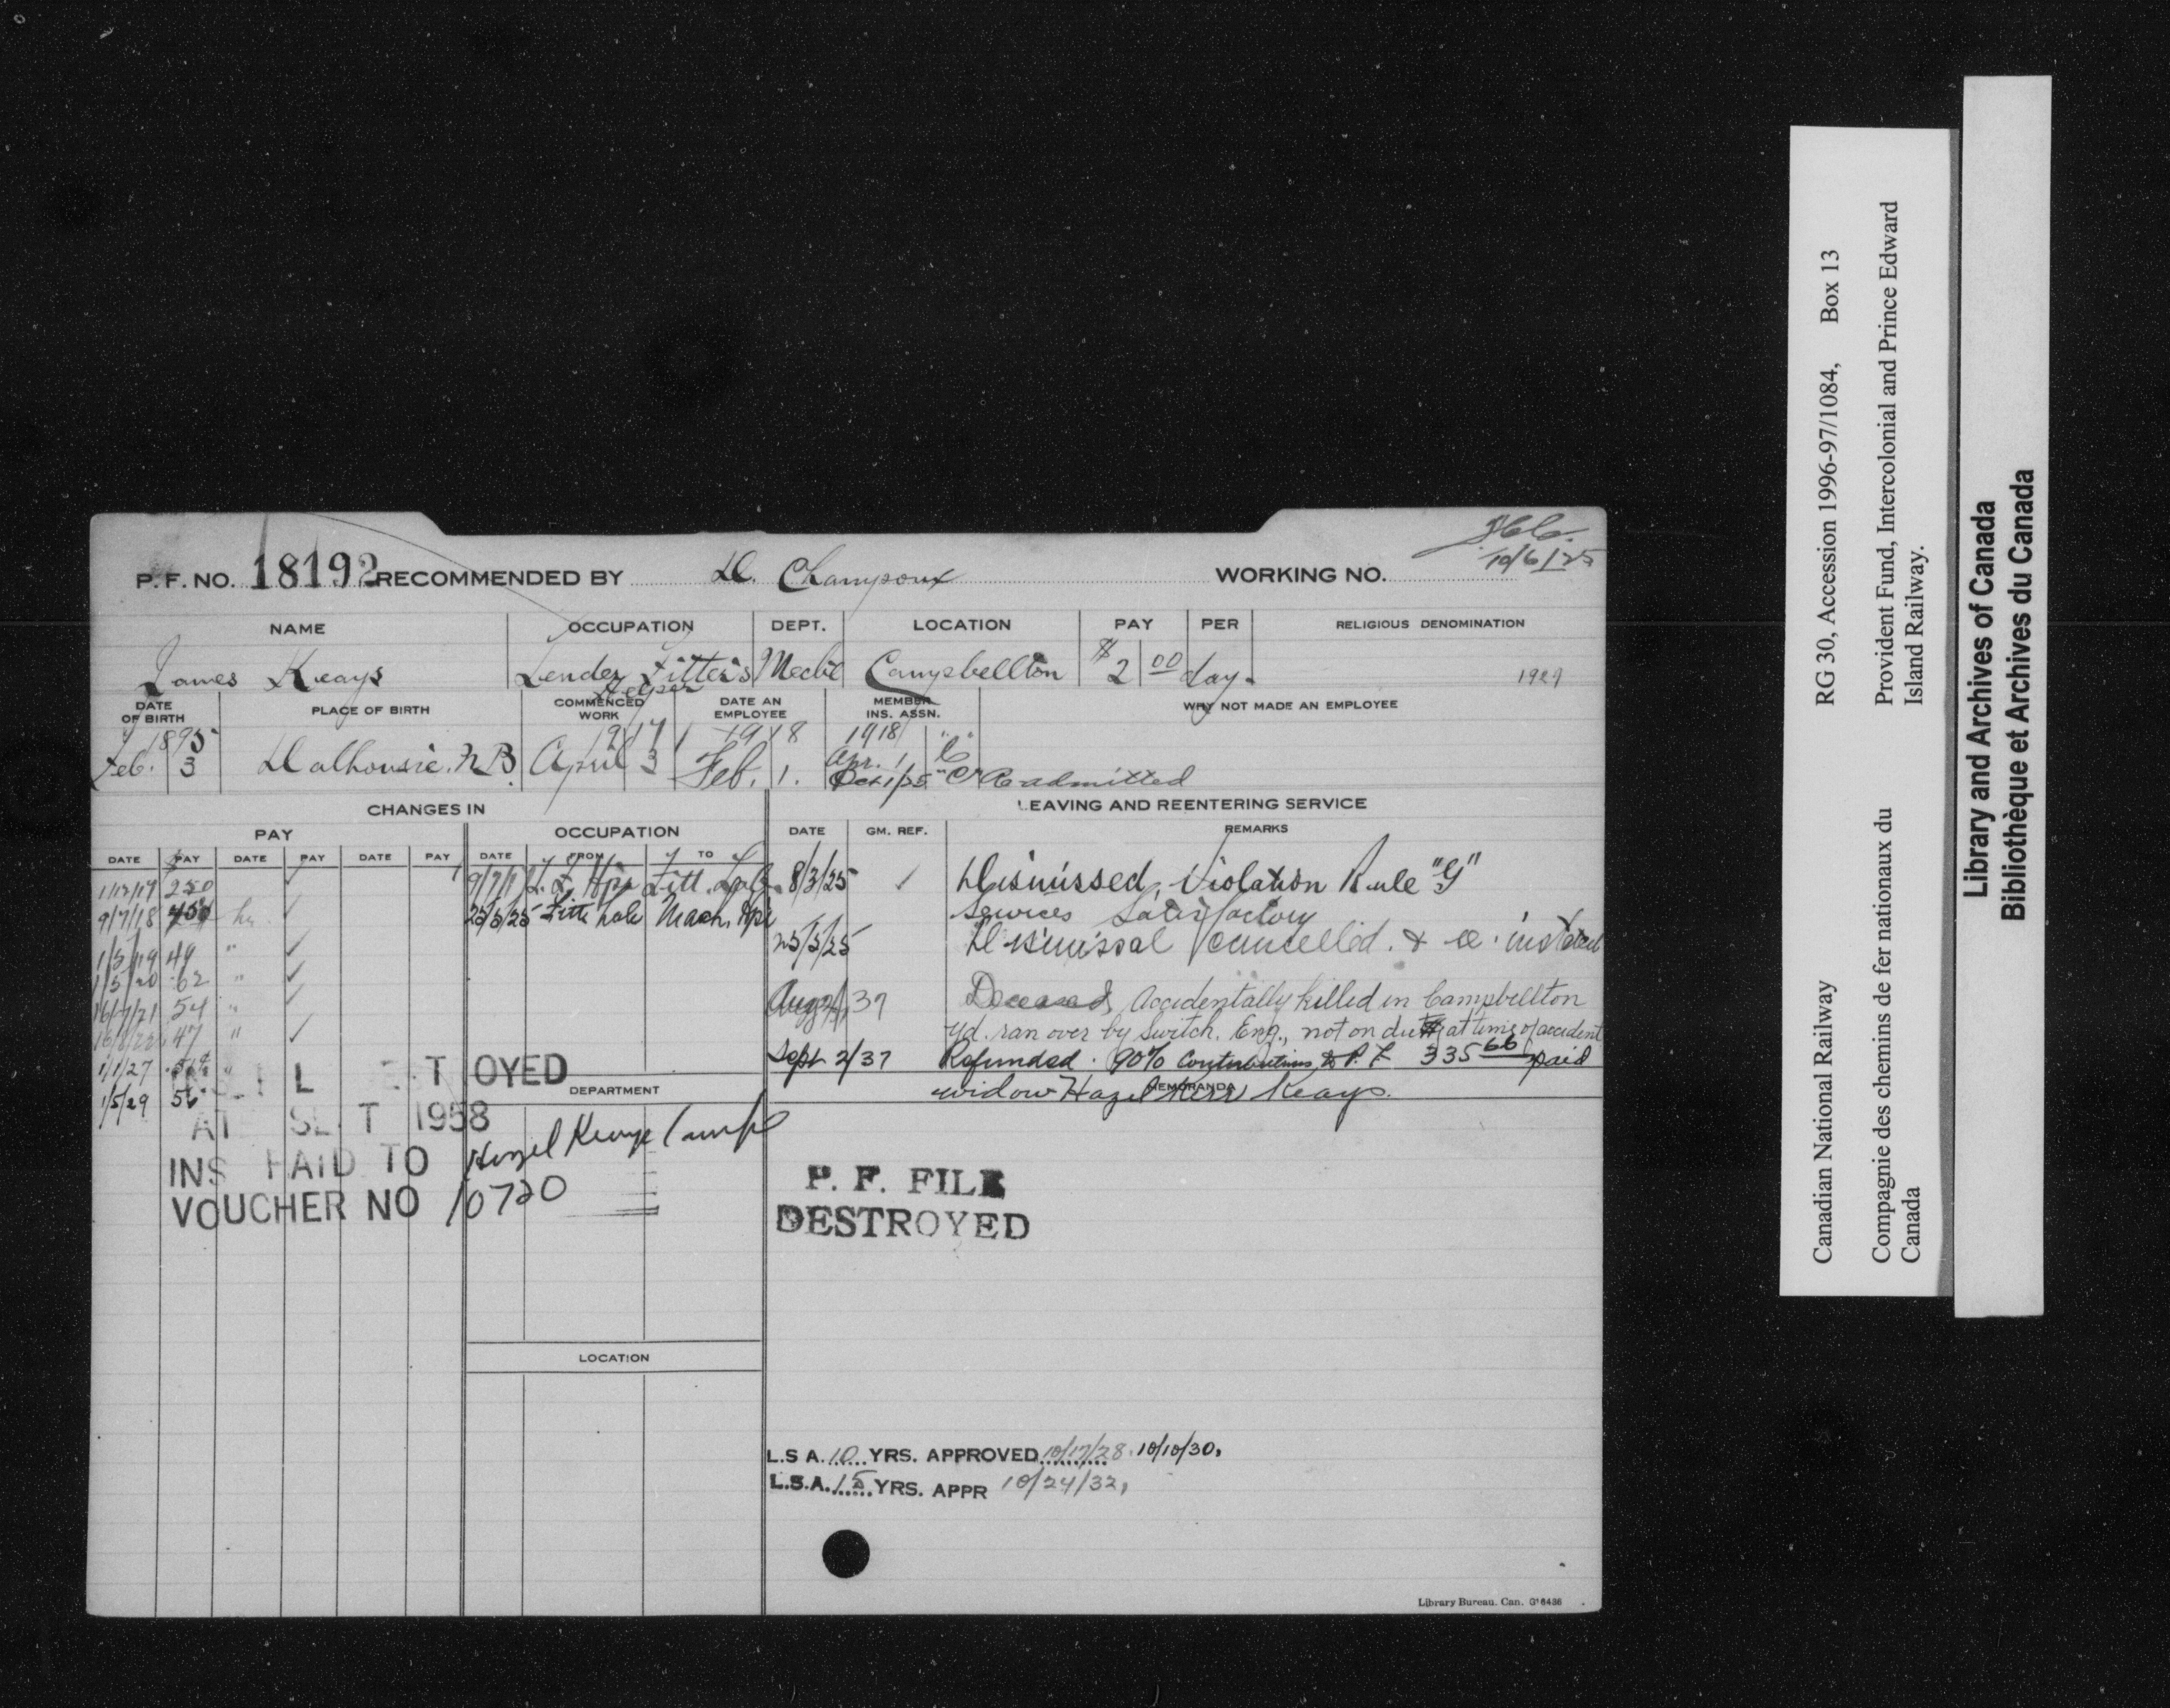 P. F. NO. 18192 RECOMMENDED BY D. Champoux WORKING NO. 10/6/25
NAME OCCUPATION DEPT. LOCATION PAY PER RELIGIOUS DENOMINATION
James Keays Tender Fitter's Helper Campbellton $2 00 day. 1929
DATE OF BIRTH PLACE OF BIRTH COMMENCED WORK DATE AN EMPLOYEE MEMBER INS. ASSN. WHY NOT MADE AN EMPLOYEE
1895 1917 1918 1918 "
Feb. 3 Dalhousie. N.B. April 3 Feb. 1. Apr. 1 "C"
Oct 1/25 "C" Readmitted
CHANGES IN LEAVING AND REENTERING SERVICE
PAY OCCUPATION DATE GM. REF. REMARKS
DATE PAY DATE PAY DATE PAY DATE FROM TO
1/12/17 250 8/3/25 ✓ Dismissed, Violation Rule "G"
9/7/18 25/5/25 Mach. Hpr Services Satisfactory
1/5/19 49 " ✓ 25/5/25 Dismissal cancelled. & re-instated
1/5/20 62 " ✓
16/7/21 54 " ✓ Aug 37 Deceased, Accidentally killed in Campbellton
47 " ✓ Yd. ran over by Switch. Eng., not on duty at time of accident
1/1/27 Sept 2/37 Refunded. 90% Contributions to P. F. 335 66 paid
1/5/29 56 widow Hazel Kerr Keays.
DEPARTMENT MEMORANDA
L T OYED
AT SE T 1958
INS PAID TO Hazel Keays
VOUCHER NO 10720
P. F. FILE
DESTROYED
LOCATION
L.S.A. 10 YRS. APPROVED 10/17/28. 10/10/30,
L.S.A. 15 YRS. APPR 10/24/32,
Library Bureau. Can. G16436
Canadian National Railway RG 30, Accession 1996-97/1084, Box 13
Compagnie des chemins de fer nationaux du Canada Provident Fund, Intercolonial and Prince Edward Island Railway.
Library and Archives of Canada
Bibliothèque et Archives du Canada